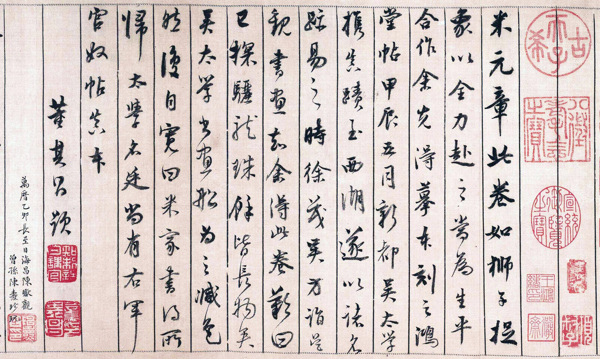 古希天子
八徵耄念之寶
宣統御覽之寶
米元章此卷如獅子捉
象以全力赴之當為生平
合作余先得摹本刻之鴻
堂帖甲辰五月新都吳太學
携真蹟至西湖遂以諸名
跡易之時徐茂吳方詣吳
觀書畫知余得此卷歎曰
已探驪龍珠餘皆長物矣
吳太學書畫船為之減色
然後自寬曰米家書得所
歸太學名廷尚有右軍
官奴帖真本
董其昌題
萬曆乙卯長至日海昌陳觀
曾孫陳珍